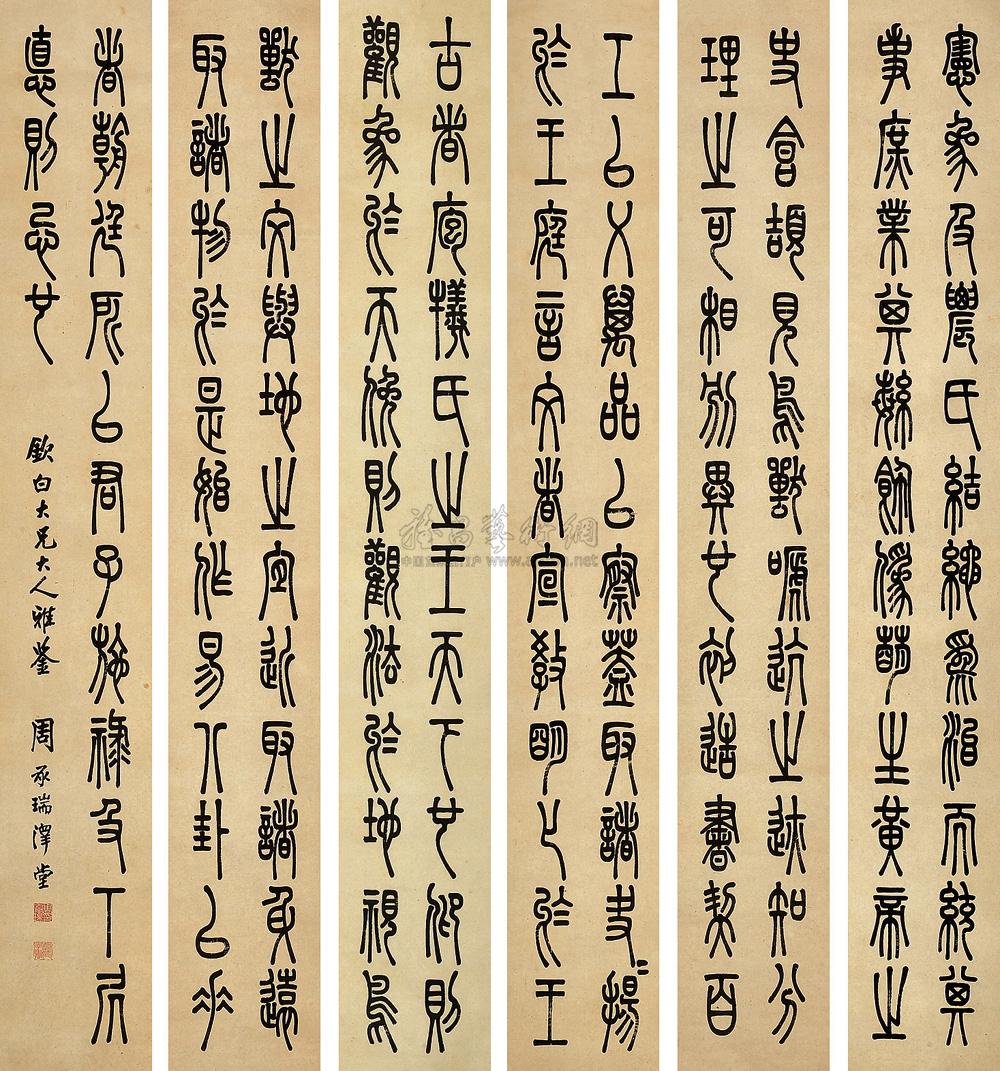 憲象及農氏結繩爲治而統其
事庶業其繁飾僞萌生黃帝之
史倉頡見鳥獸蹏迒之迹知分
理之可相別異也初造書契百
工以乂萬品以察蓋取諸夬〻揚
於王庭言文者宣教明化於王
古者庖犧氏之王天下也仰則
觀象於天俯則觀法於地視鳥
獸之文與地之宜近取諸身遠
取諸物於是始作易八卦以垂
者朝廷所以君子施祿及下居
德則忌也
欽白大兄大人雅鑒 周承瑞澤堂
雅昌藝術網